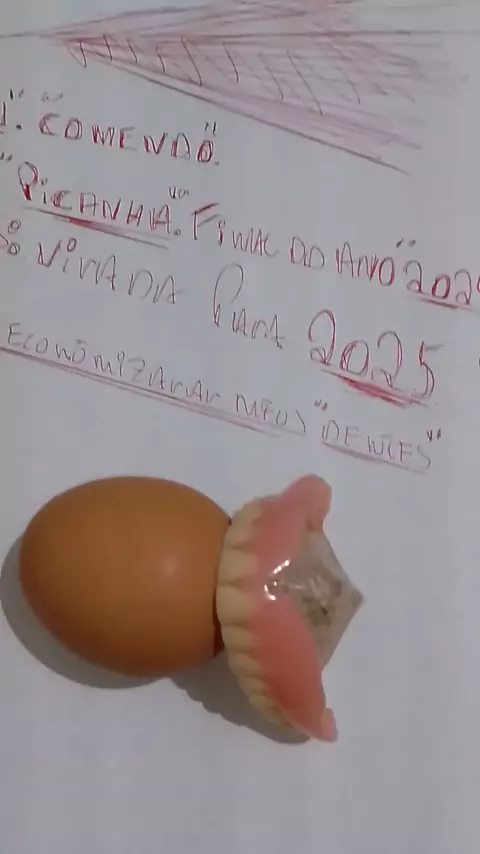 1. "COMENDO".
"PiCANHA". FiNAL DO ANO "202
ViRADA PARA 2025
ECONÔMiZARAR MEUS "DENTES"